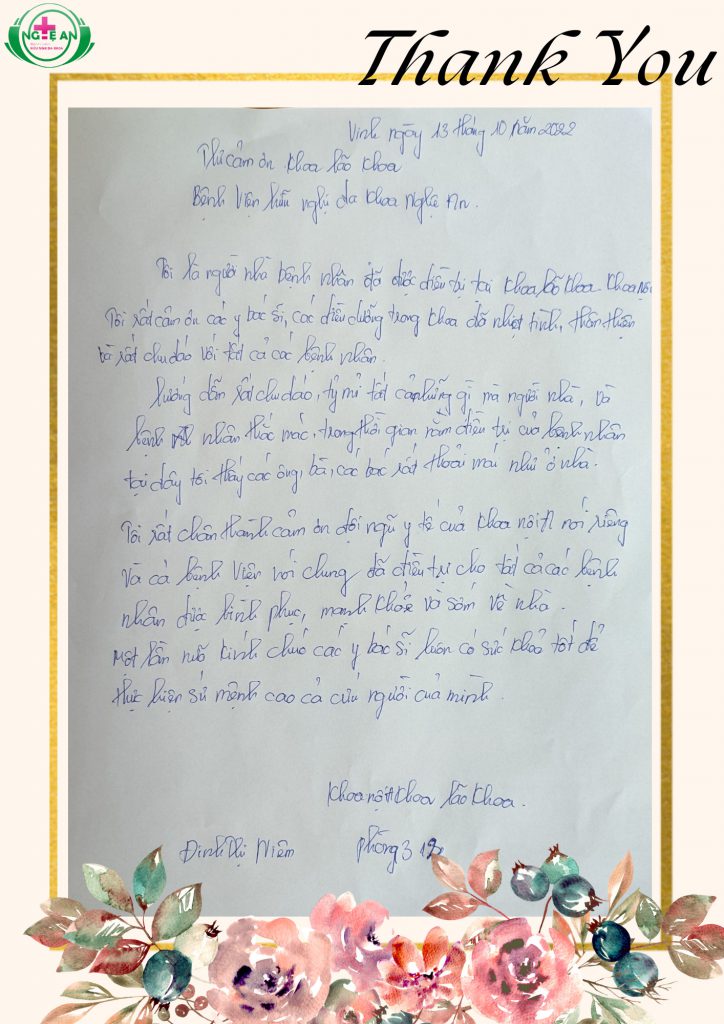 NGHỆ AN
Thank You
Vinh ngày 13 tháng 10 năm 2022
Thư cảm ơn khoa lão khoa
Bệnh Viện hữu nghị đa khoa Nghệ An.
Tôi là người nhà bệnh nhân đã được điều trị tại khoa lão khoa - khoa nội
Tôi rất cảm ơn các y bác sĩ, các điều dưỡng trong khoa đã nhiệt tình, thân thiện
và rất chu đáo với tất cả các bệnh nhân.
hướng dẫn rất chu đáo, tỷ mỉ tất cả những gì mà người nhà, và
bệnh nhân thắc mắc, trong thời gian nằm điều trị của bệnh nhân
tại đây tôi thấy các ông, bà, các bác rất thoải mái như ở nhà.
Tôi rất chân thành cảm ơn đội ngũ y tế của khoa nội A nói riêng
Và cả bệnh viên nói chung đã điều trị cho tất cả các bệnh
nhân được bình phục, mạnh khỏe và sớm về nhà.
Một lần nữa kính chúc các y bác sĩ luôn có sức khoả tốt để
thực hiện sứ mệnh cao cả cứu người của mình.
Khoa nội A khoa lão khoa.
Đinh Thị Niêm phòng 3